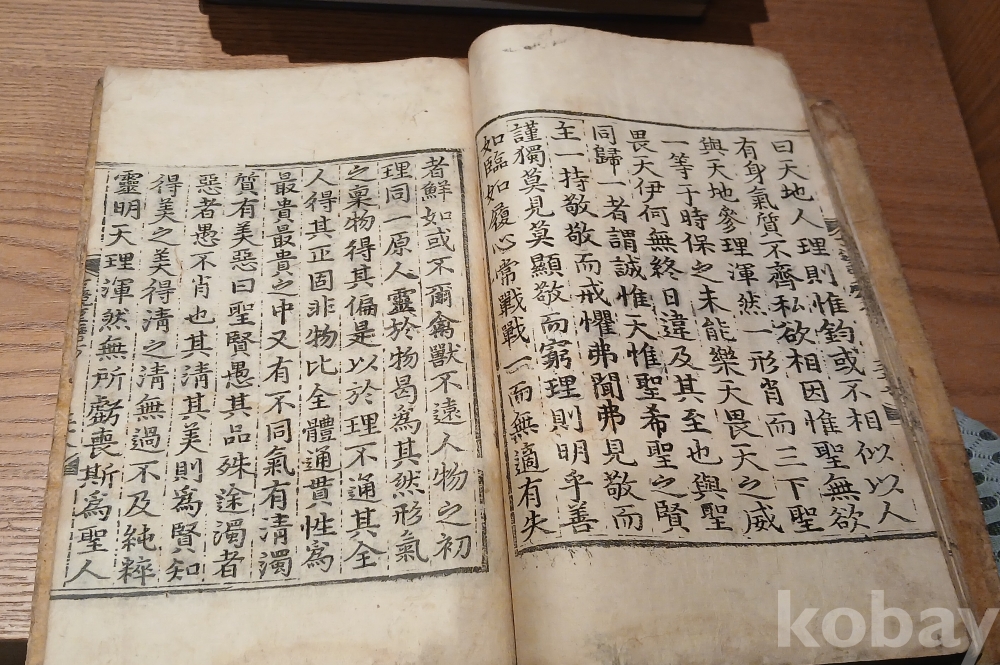 曰天地人理則惟鈞或不相似以人
有身氣質不齊私欲相因惟聖無欲
與天地參理渾然一形肖而三下聖
一等于時保之未能樂天畏天之威
畏天伊何無終日違及其至也與聖
同歸一者謂誠惟天惟聖希聖之賢
主一持敬敬而戒懼弗聞弗見敬而
謹獨莫見莫顯敬而窮理則明乎善
如臨如履心常戰戰一而無適有失
者鮮如或不爾禽獸不遠人物之初
理同一原人靈於物曷爲其然形氣
之稟物得其偏是以於理不通其全
人得其正固非物比全體通貫性爲
最貴最貴之中又有不同氣有清濁
質有美惡曰聖賢愚其品殊途濁者
惡者愚不肖也其清其美則爲賢知
得美之美得清之清無過不及純粹
靈明天理渾然無所虧喪斯爲聖人
kobay